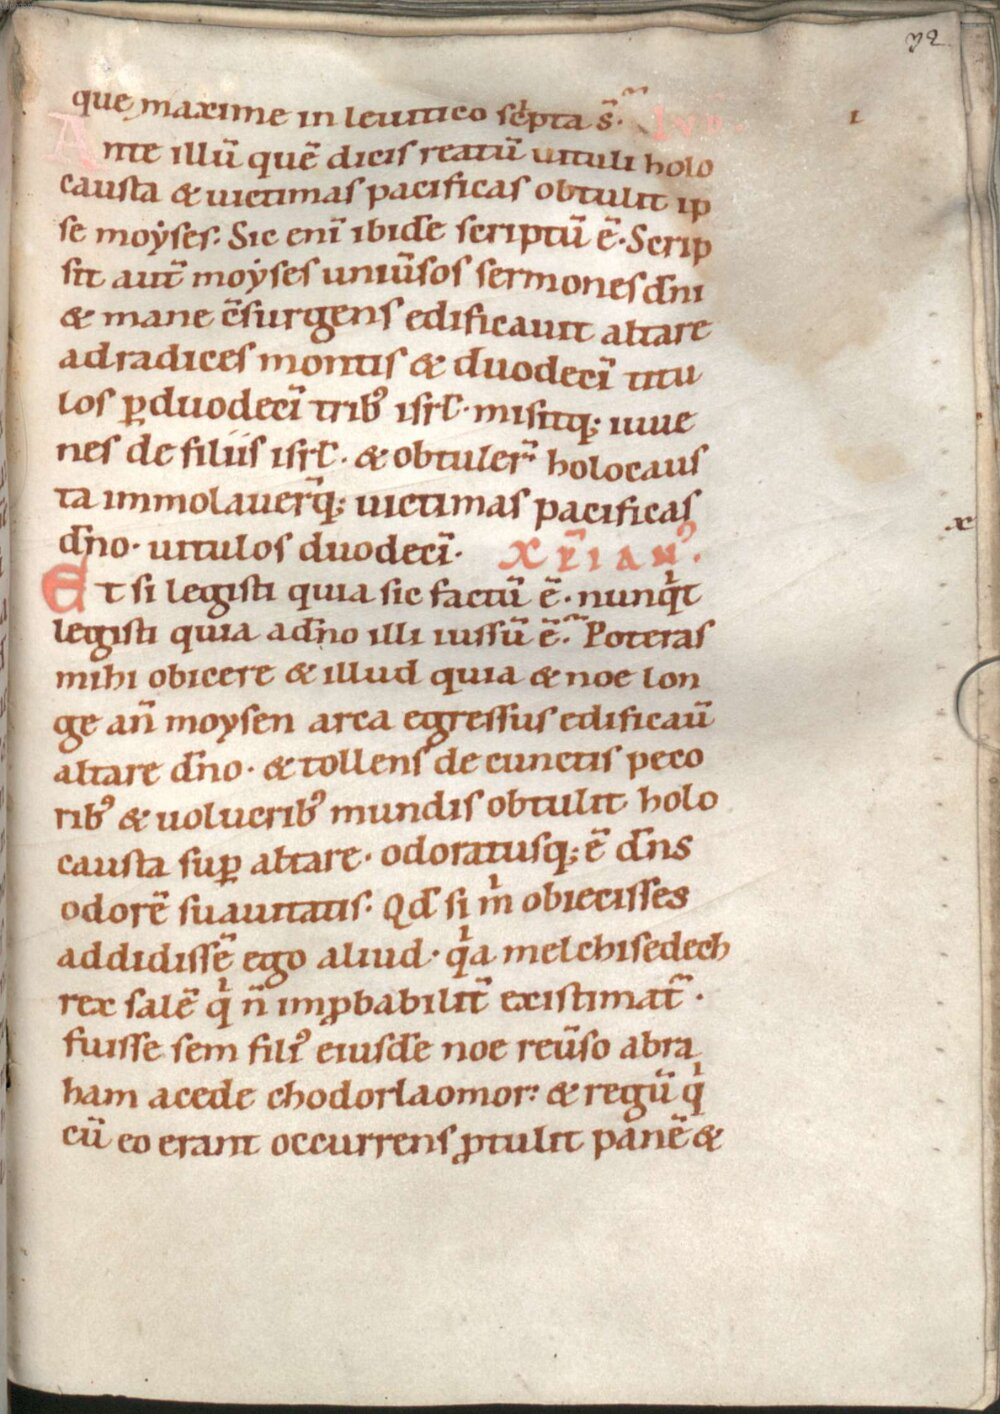 72
que maxime in leuitico sc̄pta s̄. IVD.
I
Ante illū quē dicis reatū uituli holo
causta & uictimas pacificas obtulit ip
se moẏses. Sic enī ibidē scriptū ē. Scrip
sit aut̄ moẏses uniūsos sermones dn̄i
& mane c̄surgens edificauit altare
ad radices montis & duodecī titu
los ꝑ duodecī tribꝰ isrl̄. misitq; iuue
nes de filiis isrl̄. & obtuler̄ holocaus
ta immolauer̄q; uictimas pacificas
dn̄o. uitulos duodecī. XP̄IANꝰ.
x
Et si legisti quia sic factū ē. nunqͥt
legisti quia a dn̄o illi iussū ē. Poteras
mihi obicere & illud quia & noe lon
ge an̄ moysen arca egressus edificaū
altare dn̄o. & tollens de cunctis peco
ribꝰ & uolucribꝰ mundis obtulit holo
causta suꝑ altare. odoratusq; ē dn̄s
odorē suauitatis. Qd̄ si mͥ obiecisses
addidissē ego aliud. qͥa melchisedech
rex salē qͥ n̄ imꝓbabilit̄ existimat̄.
fuisse sem filiꝰ eiusdē noe reūso abra
ham a cede chodorlaomor: & regū qͥ
cū eo erant occurrens ꝓtulit panē &